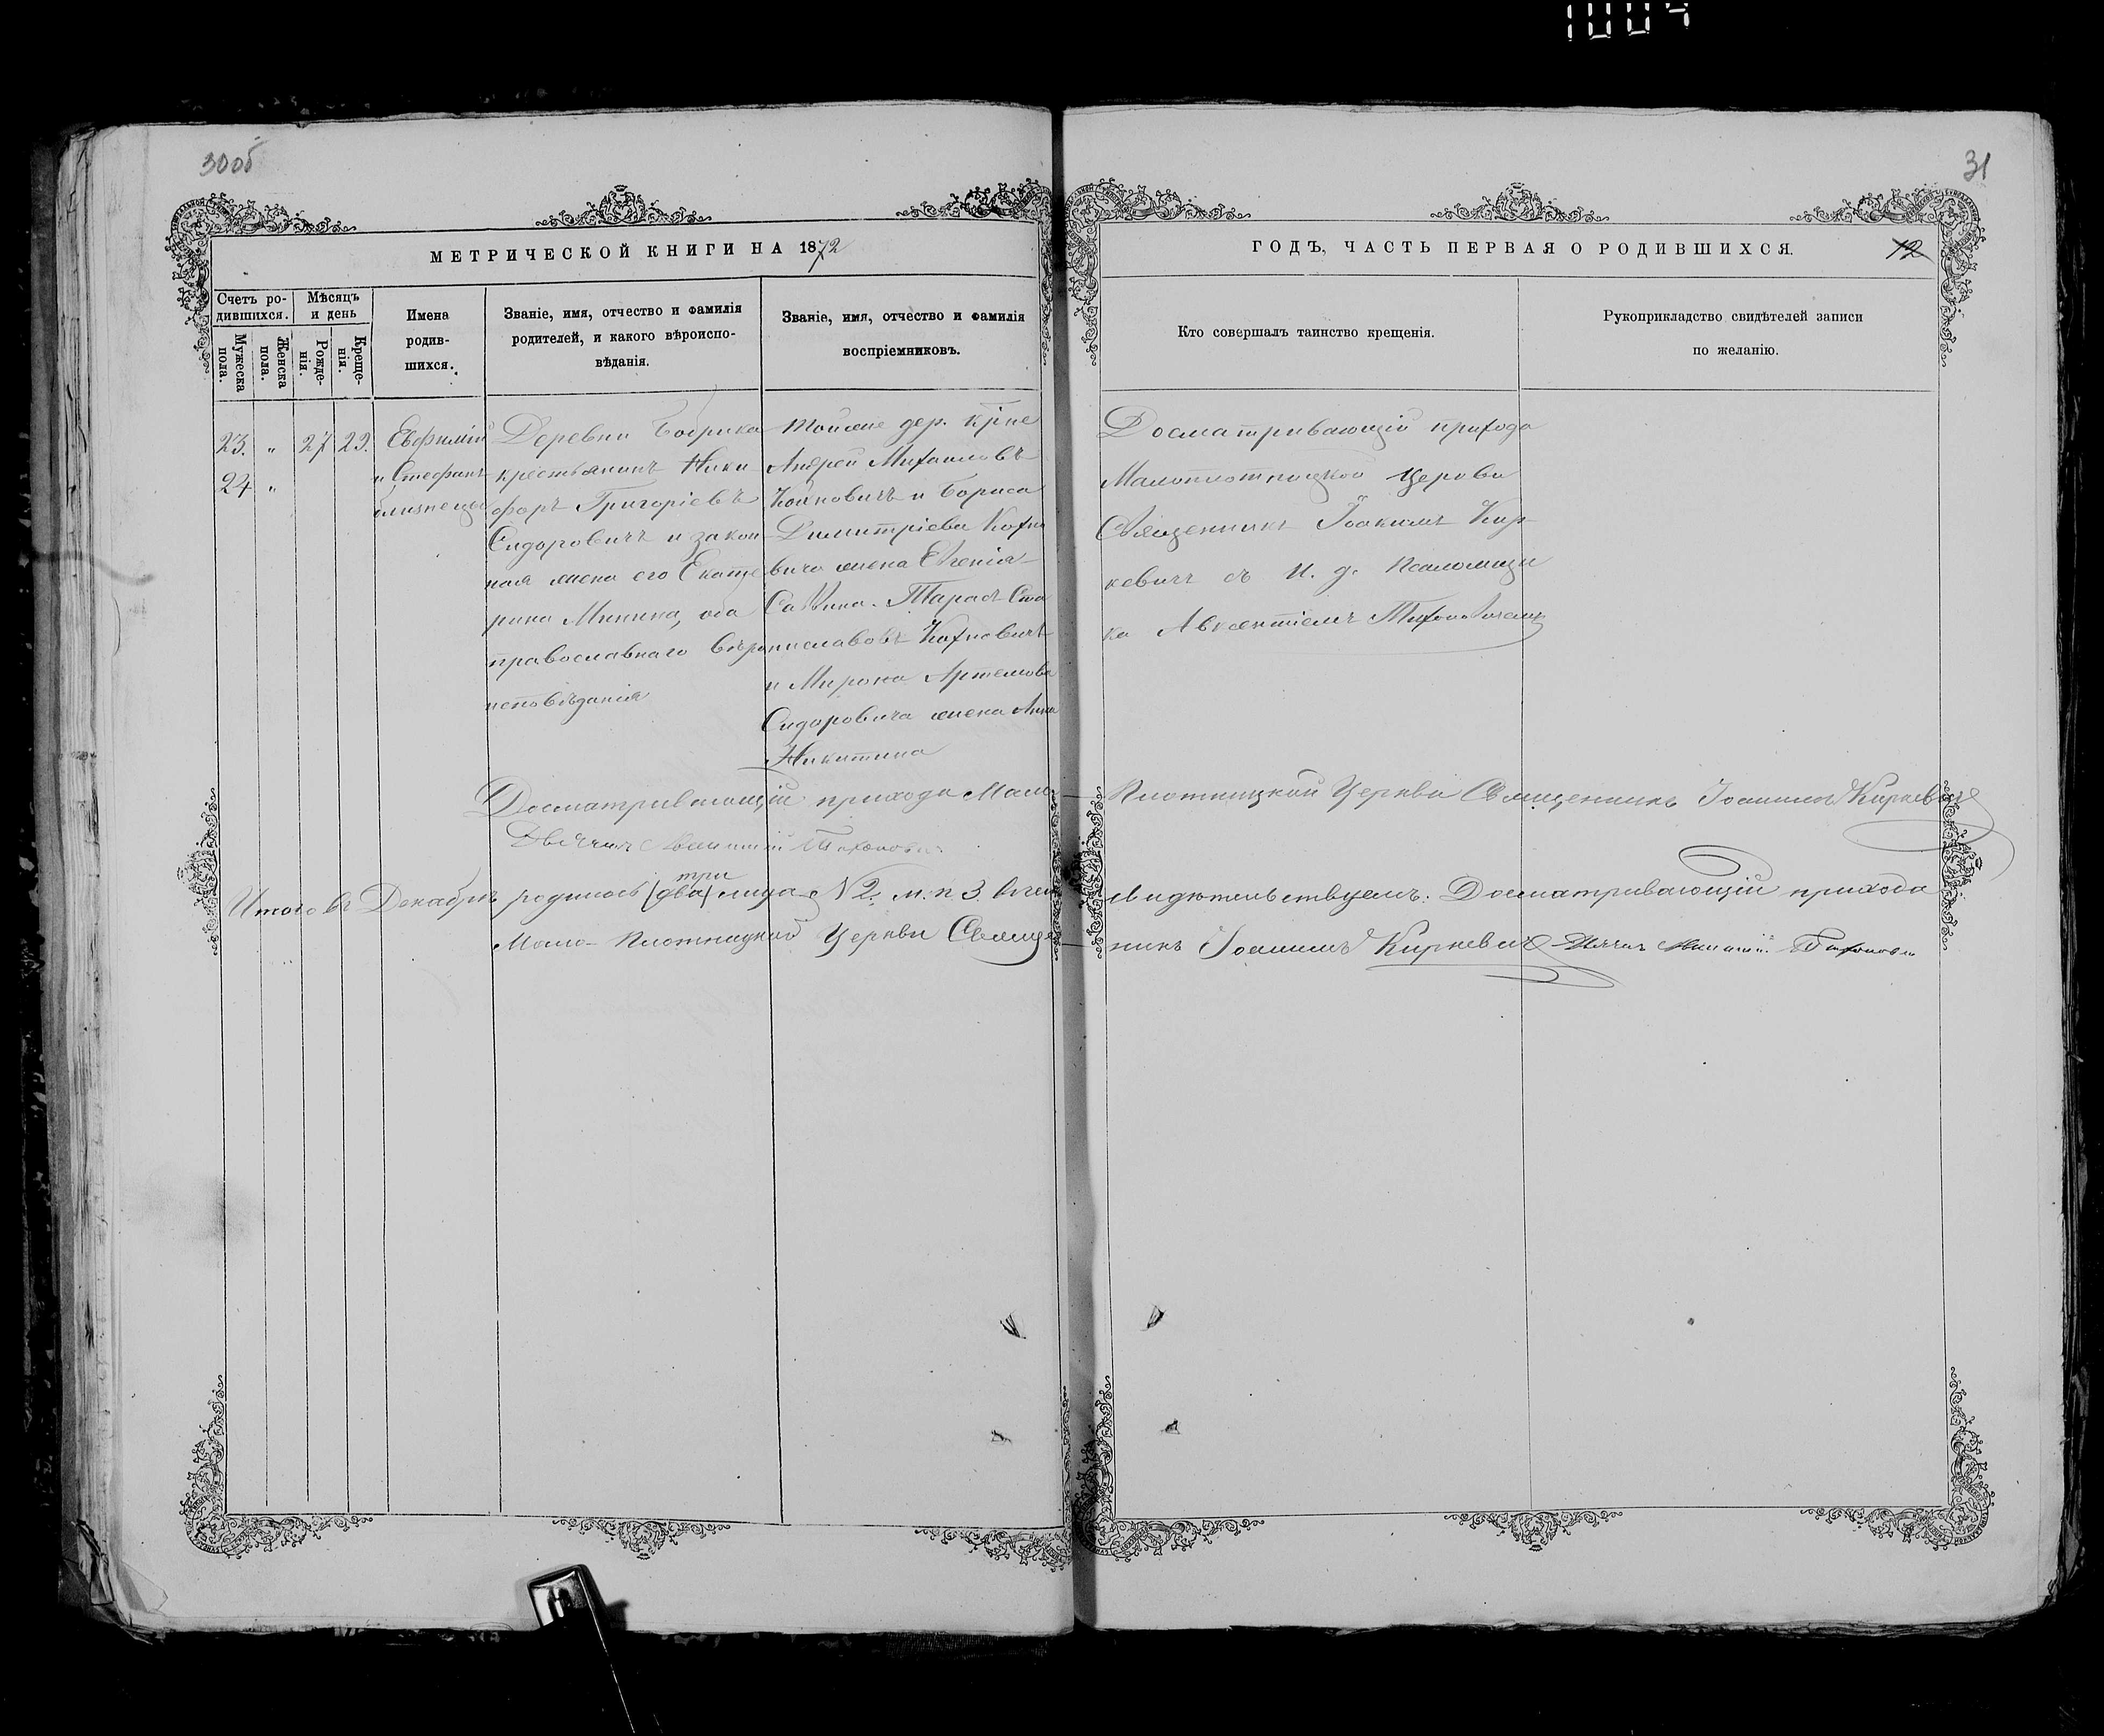 1004
30об
31
МЕТРИЧЕСКОЙ КНИГИ НА 1872
ГОДЪ, ЧАСТЬ ПЕРВАЯ О РОДИВШИХСЯ.
12
Счетъ родившихся.
Мужеска пола.
Женска пола.
Мѣсяцъ и день
Рожденія.
Крещенія.
Имена родившихся.
Званіе, имя, отчество и фамилія
родителей, и какого вѣроиспо-
вѣданія.
Званіе, имя, отчество и фамилія
воспріемниковъ.
Кто совершалъ таинство крещенія.
Рукоприкладство свидѣтелей записи
по желанію.
23. „ 27 29.
24 „
Евфимій
и Стефанъ
близнецы
Деревни Бобрика
крестьянинъ Ники
форъ Григоріевъ
Сидоровичъ и закон
ная жена его Екате
рина Минина, оба
православнаго вѣро
исповѣданія
Тойже дер. крне
Андрей Михаиловъ
и Бориса
Димитріева Кохно
вича жена Евгенія
Саввина. Тарасъ Ста
ниславовъ Кохновичъ
и Мирона Артемова
Сидоровича жена Анна
Никитина
Досматривающій прихода
Малоплотницкой Церкви
Священникъ Іоакимъ Кир-
кевичъ съ И. д. Псаломщи
ка Авксентіемъ Тихоновичемъ
Досматривающій прихода Мало-
Плотницкой Церкви Священникъ Іоакимъ Киркевичъ
Итого въ Декабрѣ родилось (два) три лица N 2. м. п 3.
свидѣтельствуемъ: Досматривающій прихода
Мало-Плотницкой Церкви Свяще-
нникъ Іоакимъ Киркевичъ